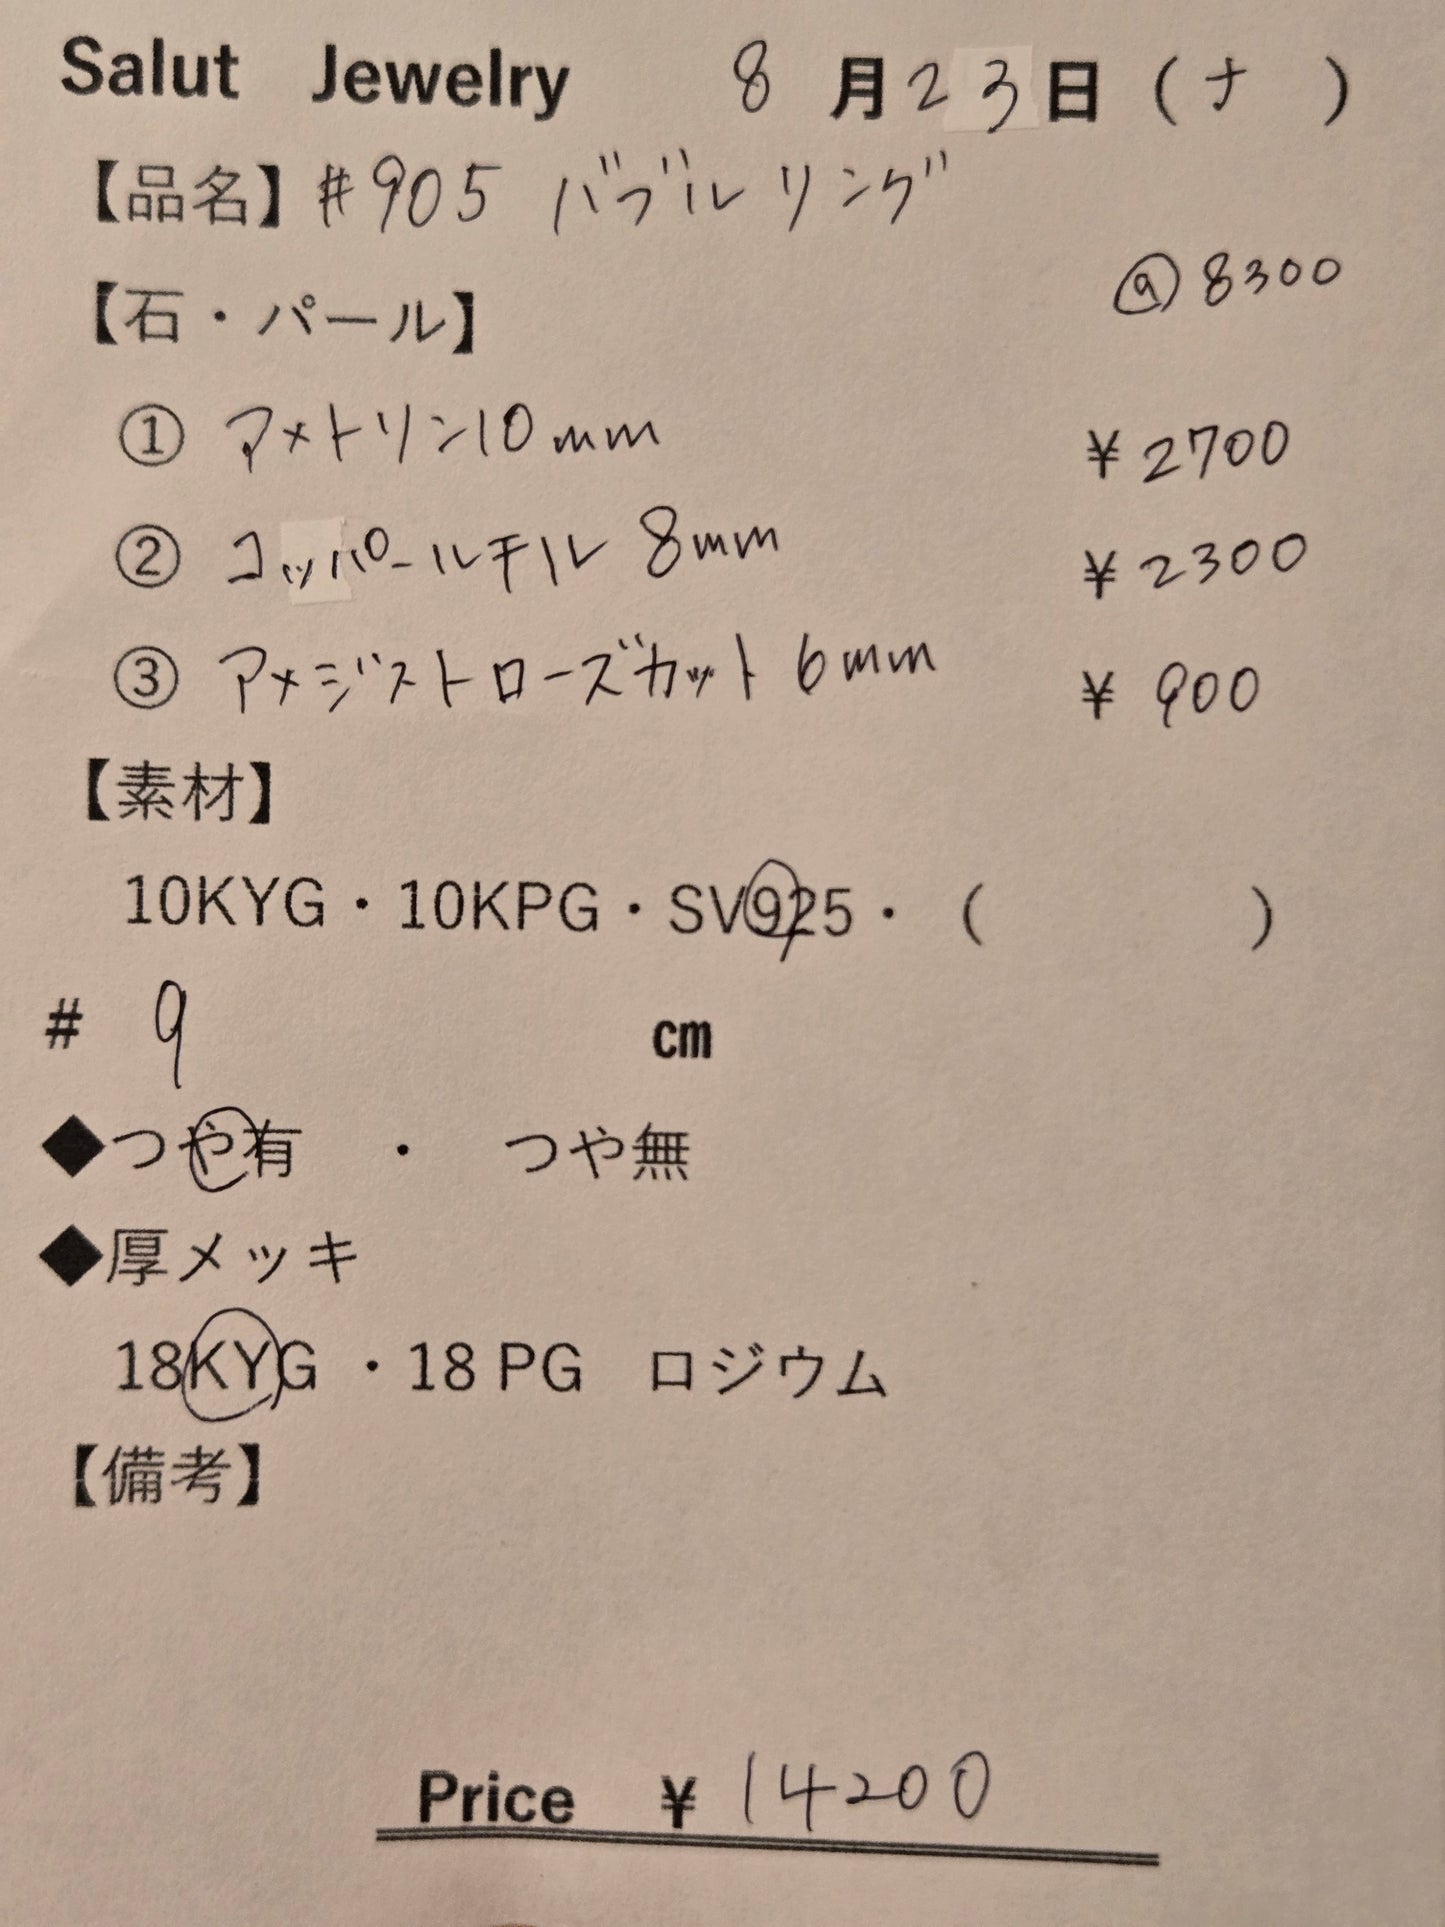 Salut Jewelry 8月23日(ナ )
【品名】#905 バブルリング
@8300
【石・パール】
① アメトリン10mm ¥2700
② コッパールチル 8mm ¥2300
③ アメジストローズカット 6mm ¥900
【素材】
10KYG・10KPG・SV925・( )
# 9 cm
◆つや有 ・ つや無
◆厚メッキ
18KYG ・18 PG ロジウム
【備考】
Price ¥14200